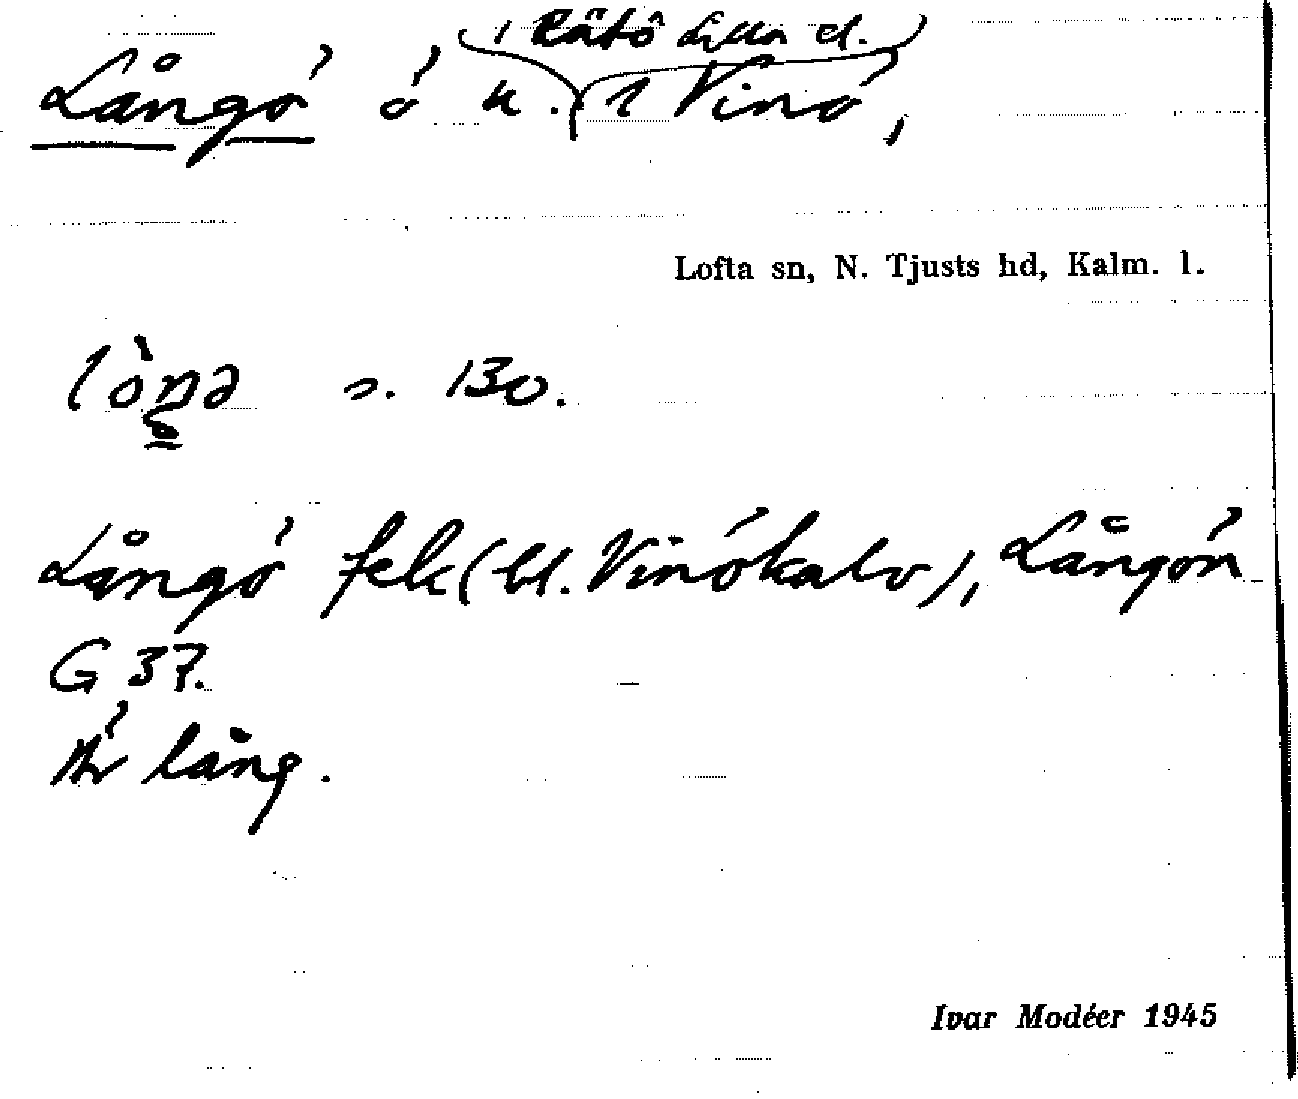 (i Rätö Lilla el.)
Långö ö n. i Vinö,
Lofta sn, N. Tjusts hd, Kalm. l.
s. 130.
Långö fek (bl. Vinökalv), Långön
G 37.
Är lång.
Ivar Modéer 1945